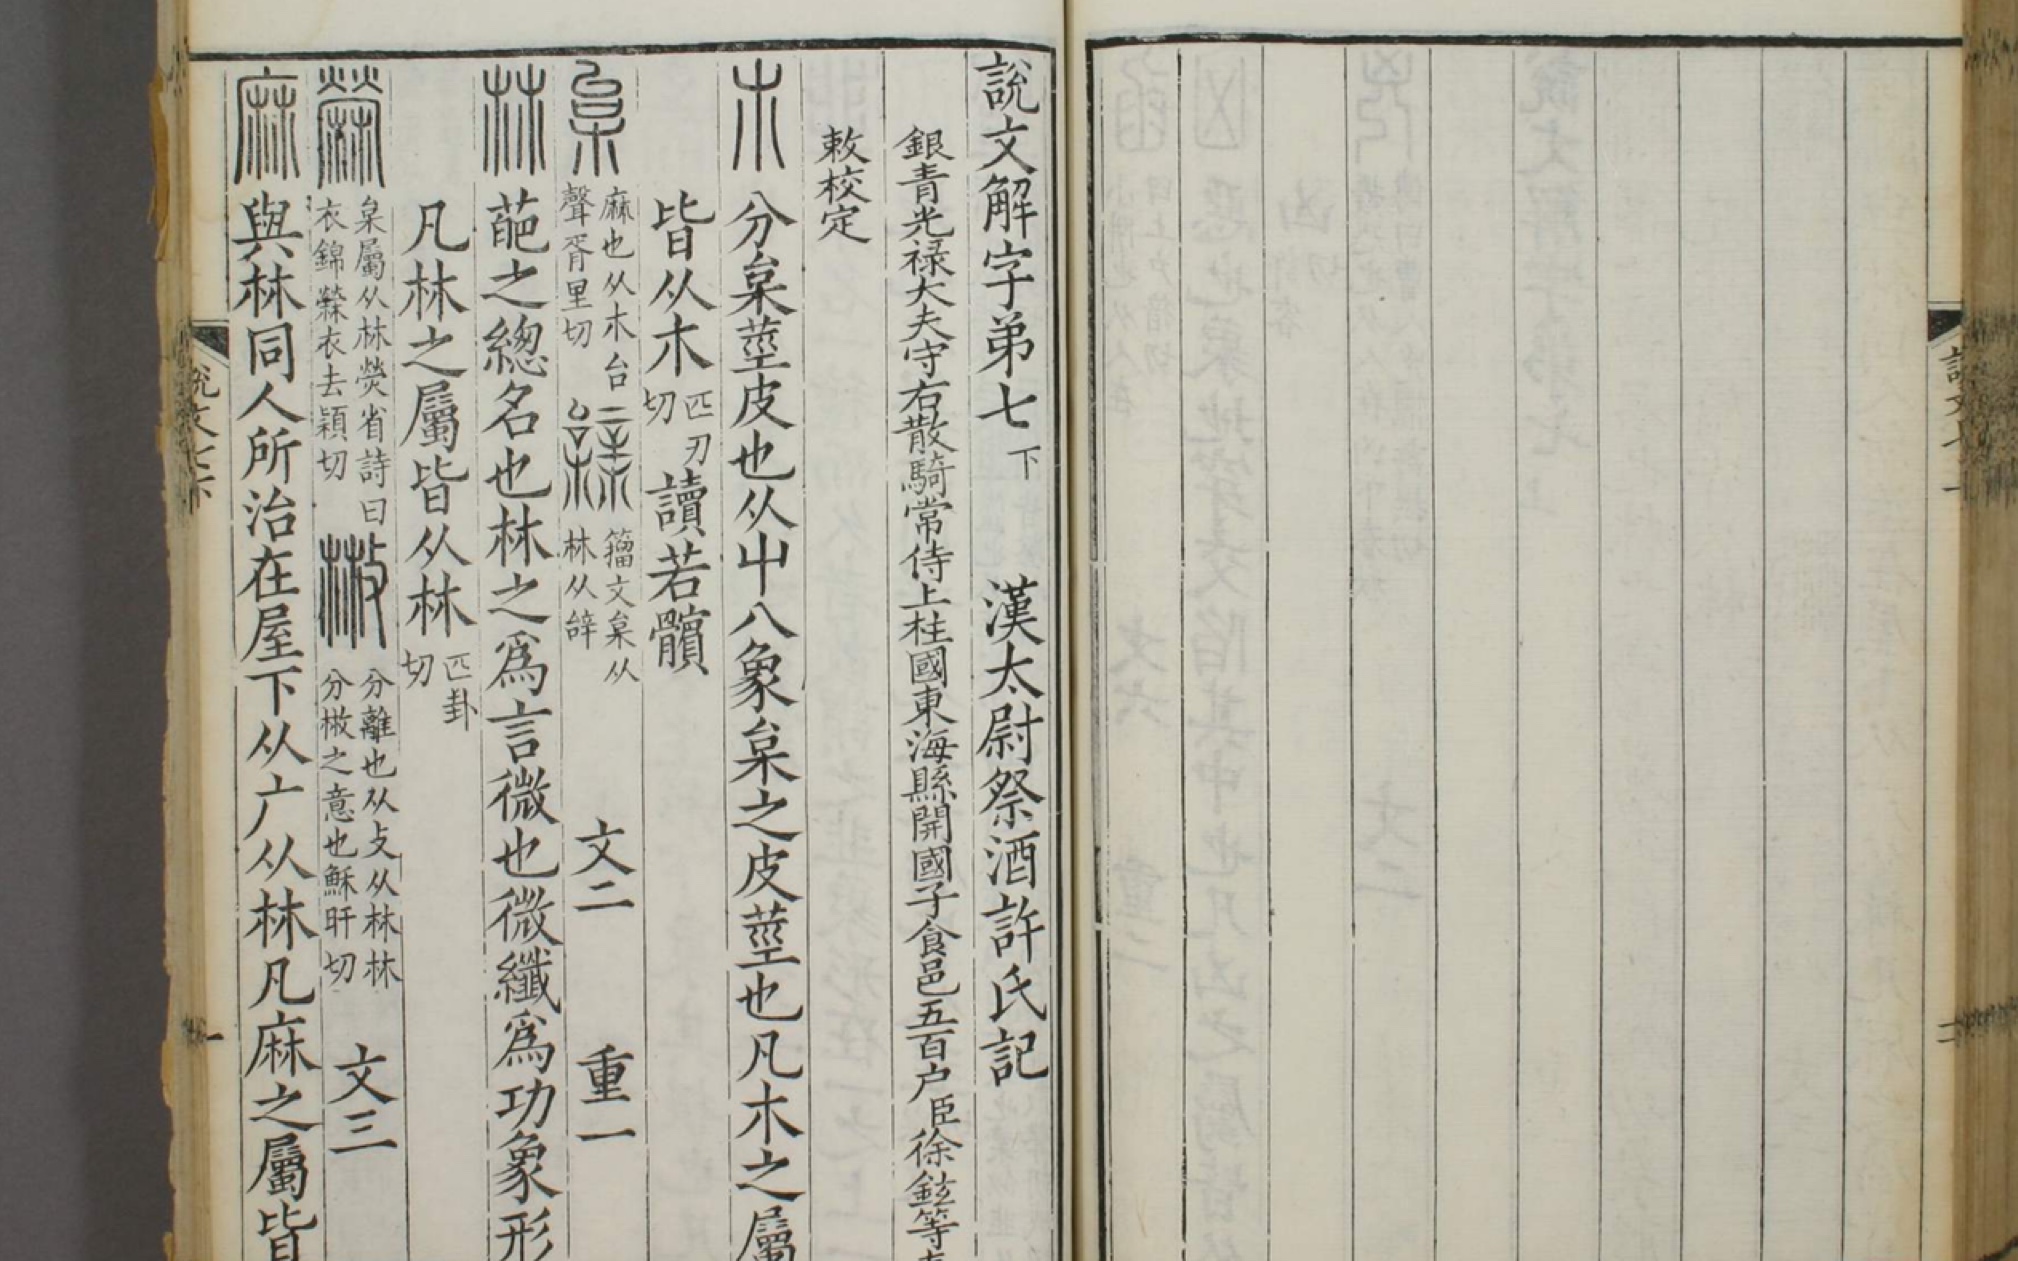 說文解字弟七下　漢太尉祭酒許氏記
銀青光禄大夫守右散騎常侍上柱國東海縣開國子食邑五百户臣徐鉉等
敕校定
𣎳 分枲莖皮也从屮八象枲之皮莖也凡𣎳之屬
皆从𣎳匹刃切讀若髕
枲 麻也从𣎳台聲胥里切 𨐖 籀文枲从𣏟从辝 文二 重一
𣏟 葩之緫名也𣏟之爲言微也微纖爲功象形
凡𣏟之屬皆从𣏟匹卦切
檾 枲屬从𣏟熒省詩曰衣錦檾衣去穎切 㪔 分離也从攴从𣏟𣏟分㪔之意也穌旰切 文三
麻 與𣏟同人所治在屋下从广从𣏟凡麻之屬皆
說文七下
一